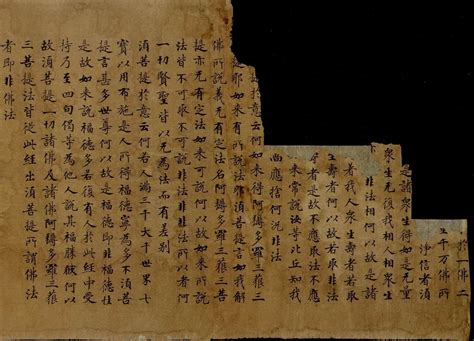 於一佛二
千万佛所
淨信者須
是諸衆生得如是无量
衆生无復我相人相衆
非法相何以故是諸
者我人衆生壽者若取
生壽者何以故若取
者是故不應取法不應
以来常說汝等比丘知我
尚應捨何況非法
提於意云何如来得阿耨多羅三藐三
提耶如来有所說法耶須菩提言如我解
佛所說義无有定法名阿耨多羅三藐三菩
提亦无有定法如来可說何以故如来所說
法皆不可取不可說非法非非法所以者何
一切賢聖皆以无為法而有差別
須菩提於意云何若人滿三千大千世界七
寶以用布施是人所得福德寧為多不須菩
提言甚多世尊何以故是福德即非福德性
是故如来說福德多若復有人於此經中受
持乃至四句偈等為他人說其福勝彼何以
故須菩提一切諸佛及諸佛阿耨多羅三藐
三菩提法皆從此經出須菩提所謂佛法
者即非佛法